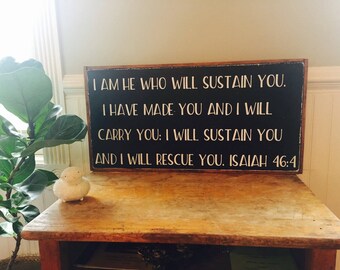 I AM HE WHO WILL SUSTAIN YOU.
I HAVE MADE YOU AND I WILL
CARRY YOU; I WILL SUSTAIN YOU
AND I WILL RESCUE YOU. ISAIAH 46:4